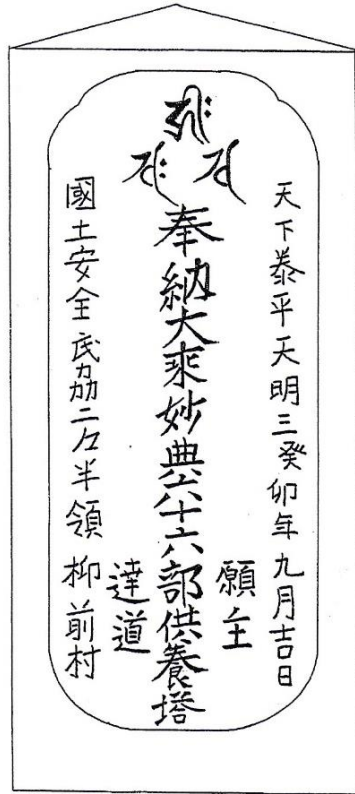 天下泰平天明三癸卯年九月吉日
願主
奉納大乗妙典六十六部供養塔
達道
國土安全 二半領 柳前村